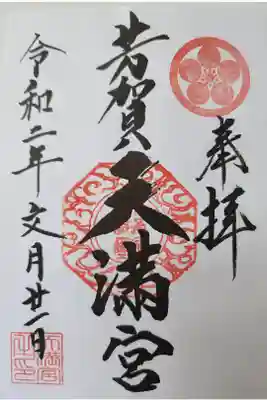 奉拝
芳賀天満宮
令和二年文月廿一日